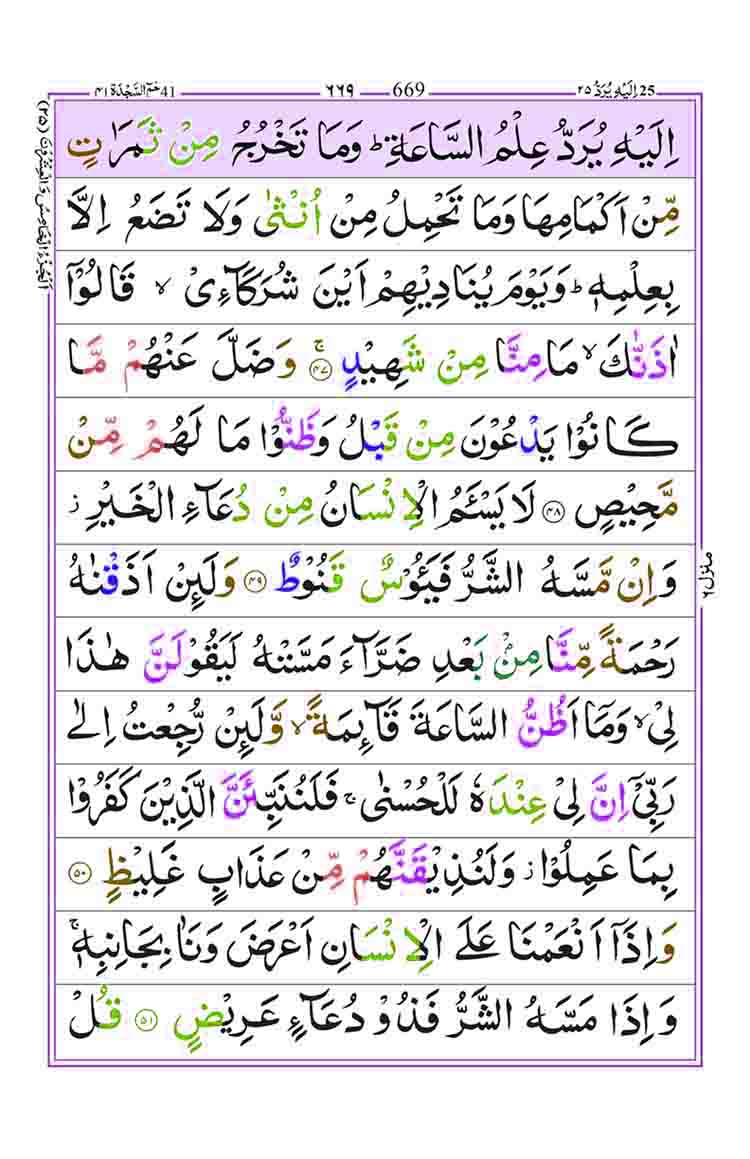 اِلَيْهِ يُرَدُّ 25 ٢٥ 669 ٦٦٩ حٰمٓ السَّجْدَة 41 ٤١
اِلَيْهِ يُرَدُّ عِلْمُ السَّاعَةِ ؕ وَمَا تَخْرُجُ مِنْ ثَمَرٰتٍ
مِّنْ اَكْمَامِهَا وَمَا تَحْمِلُ مِنْ اُنْثٰى وَلَا تَضَعُ اِلَّا
بِعِلْمِهٖ ؕ وَيَوْمَ يُنَادِيْهِمْ اَيْنَ شُرَكَآءِيْ ۙ قَالُوْٓا
اٰذَنّٰكَ ۙ مَا مِنَّا مِنْ شَهِيْدٍ ۚ ﴿٤٧﴾ وَضَلَّ عَنْهُمْ مَّا
كَانُوْا يَدْعُوْنَ مِنْ قَبْلُ وَظَنُّوْا مَا لَهُمْ مِّنْ
مَّحِيْصٍ ﴿٤٨﴾ لَا يَسْـَٔمُ الْاِنْسَانُ مِنْ دُعَآءِ الْخَيْرِ ز
وَاِنْ مَّسَّهُ الشَّرُّ فَيَـُٔوْسٌ قَنُوْطٌ ﴿٤٩﴾ وَلَئِنْ اَذَقْنٰهُ
رَحْمَةً مِّنَّا مِنْۢ بَعْدِ ضَرَّآءَ مَسَّتْهُ لَيَقُوْلَنَّ هٰذَا
لِيْ ۙ وَمَآ اَظُنُّ السَّاعَةَ قَآئِمَةً ۙ وَّلَئِنْ رُّجِعْتُ اِلٰى
رَبِّيْٓ اِنَّ لِيْ عِنْدَهٗ لَلْحُسْنٰى ۚ فَلَنُنَبِّئَنَّ الَّذِيْنَ كَفَرُوْا
بِمَا عَمِلُوْا ز وَلَنُذِيْقَنَّهُمْ مِّنْ عَذَابٍ غَلِيْظٍ ﴿٥٠﴾
وَاِذَآ اَنْعَمْنَا عَلَى الْاِنْسَانِ اَعْرَضَ وَنَاٰ بِجَانِبِهٖ ۚ
وَاِذَا مَسَّهُ الشَّرُّ فَذُوْ دُعَآءٍ عَرِيْضٍ ﴿٥١﴾ قُلْ
اَلْجُزْءُ الْخَامِسُ وَالْعِشْرُوْنَ (٢٥)
منزل ٦